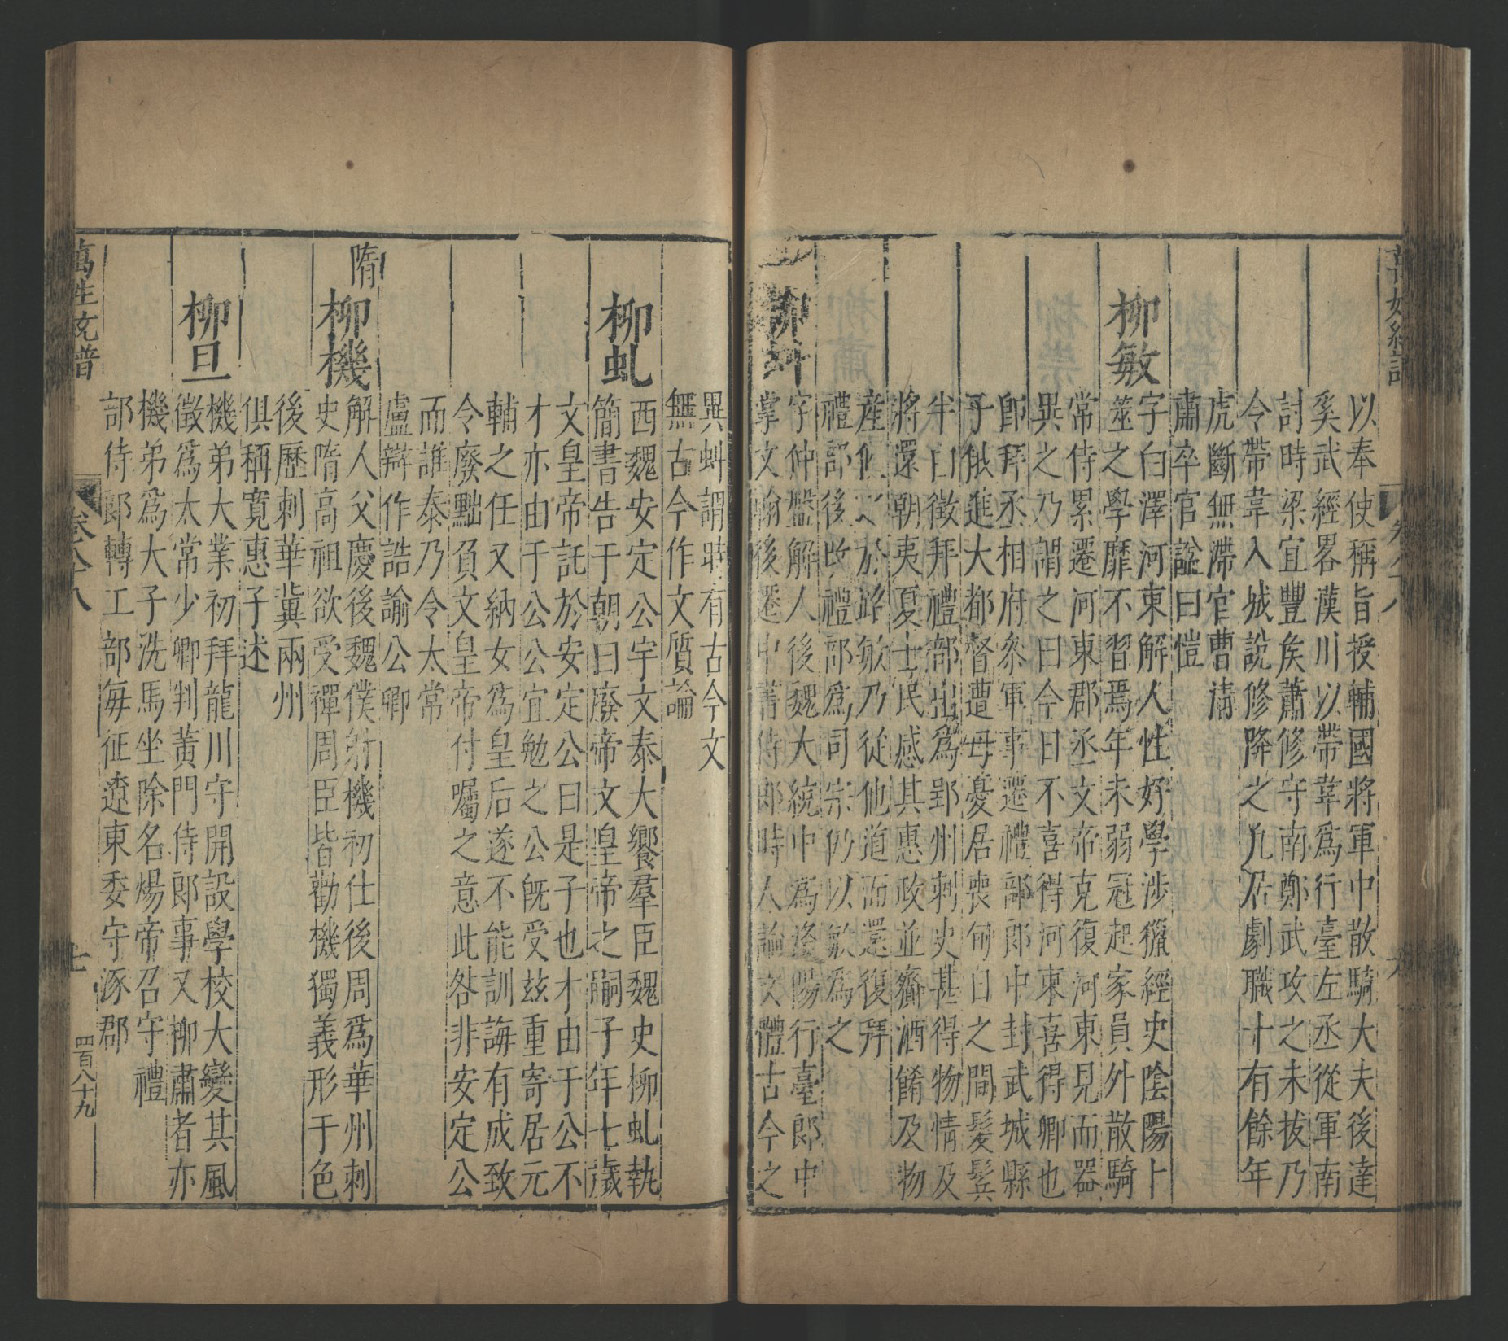 以奉使稱旨授輔國將軍中散騎大夫後達
奚武經畧漢川以帶韋爲行臺左丞從軍南
討時梁宜豐矦蕭修守南鄭武攻之未拔乃
令帶韋入城說修降之凢居劇職十有餘年
虎斷無滯官曹清
肅卒官諡曰愷
柳敏
字白澤河東解人性好學涉獵經史陰陽卜
筮之學靡不習焉年未弱冠起家員外散騎
常侍累遷河東郡丞文帝克復河東見而器
異之乃謂之曰今日不喜得河東喜得卿也
卽拜丞相府叅軍事遷禮部郎中封武城縣
子俄進大都督遭母憂居喪旬日之間髮鬂
半白徵拜禮部出爲郢州刺史甚得物情及
將還朝夷夏士民感其惠政並齎酒餚及物
產候之於路敏乃從他道而還復拜
禮部後改禮部爲司宗仍以敏爲之
柳蚪
字仲盤解人後魏大統中爲洛陽行臺郎中
掌文翰後遷中書侍郎時人論文體古今之
異蚪謂時有古今文
無古今作文質論
柳虬
西魏安定公宇文泰大饗羣臣魏史柳虬執
簡書告于朝曰廢帝文皇帝之嗣子年七歲
文皇帝託於安定公曰是子也才由于公不
才亦由于公公宜勉之公旣受兹重寄居元
輔之任又納女爲皇后遂不能訓誨有成致
令廢黜負文皇帝付囑之意此咎非安定公
而誰泰乃令太常
盧辯作誥諭公卿
隋
柳機
解人父慶後魏僕射機初仕後周爲華州刺
史隋高祖欲受禪周臣皆勸機獨義形于色
後歷刺華冀兩州
俱稱寬惠子述
柳旦
機弟大業初拜龍川守開設學校大變其風
徵爲太常少卿判黃門侍郎事又柳肅者亦
機弟爲大子洗馬坐除名煬帝召守禮
部侍郎轉工部每征遼東委守涿郡
萬姓攷譜
卷八十八
四百八十九